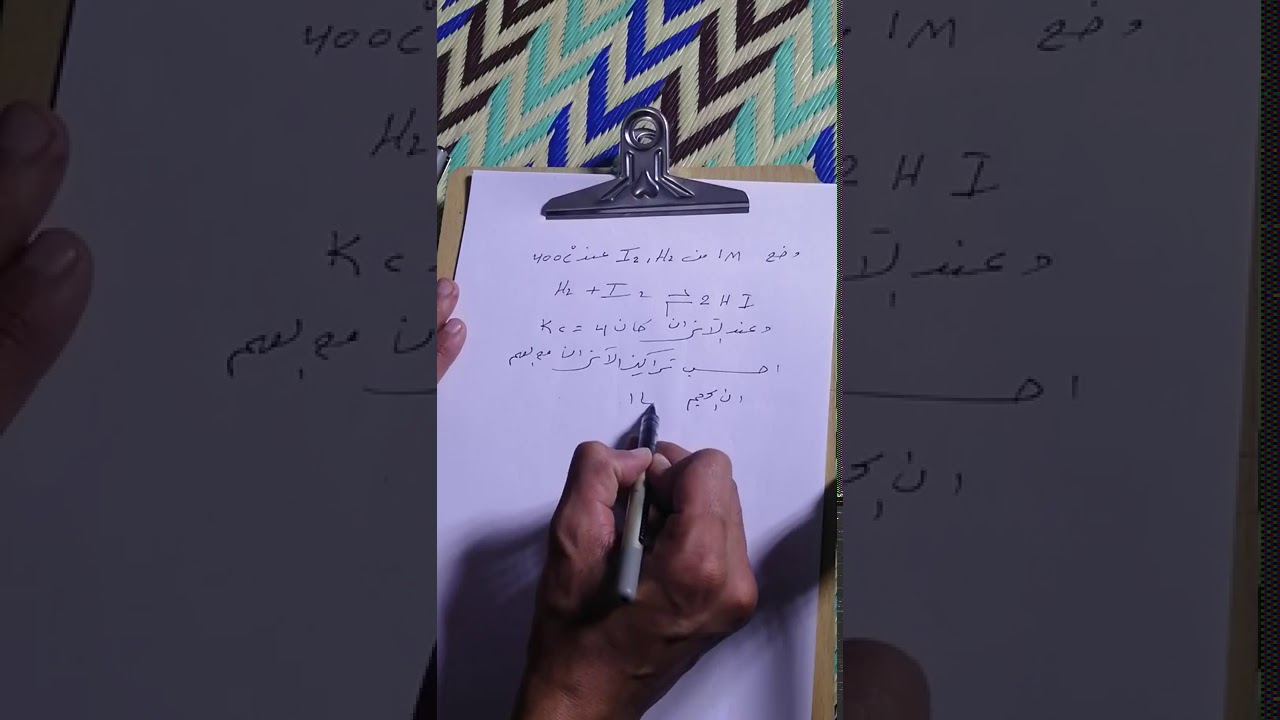 وضع 1M من H2 , I2 عند 400C°
H2 + I2 ⇌ 2HI
وعند الاتزان كان Kc = 4
احسب تراكيز الاتزان مع العلم
ان الحجم 1L